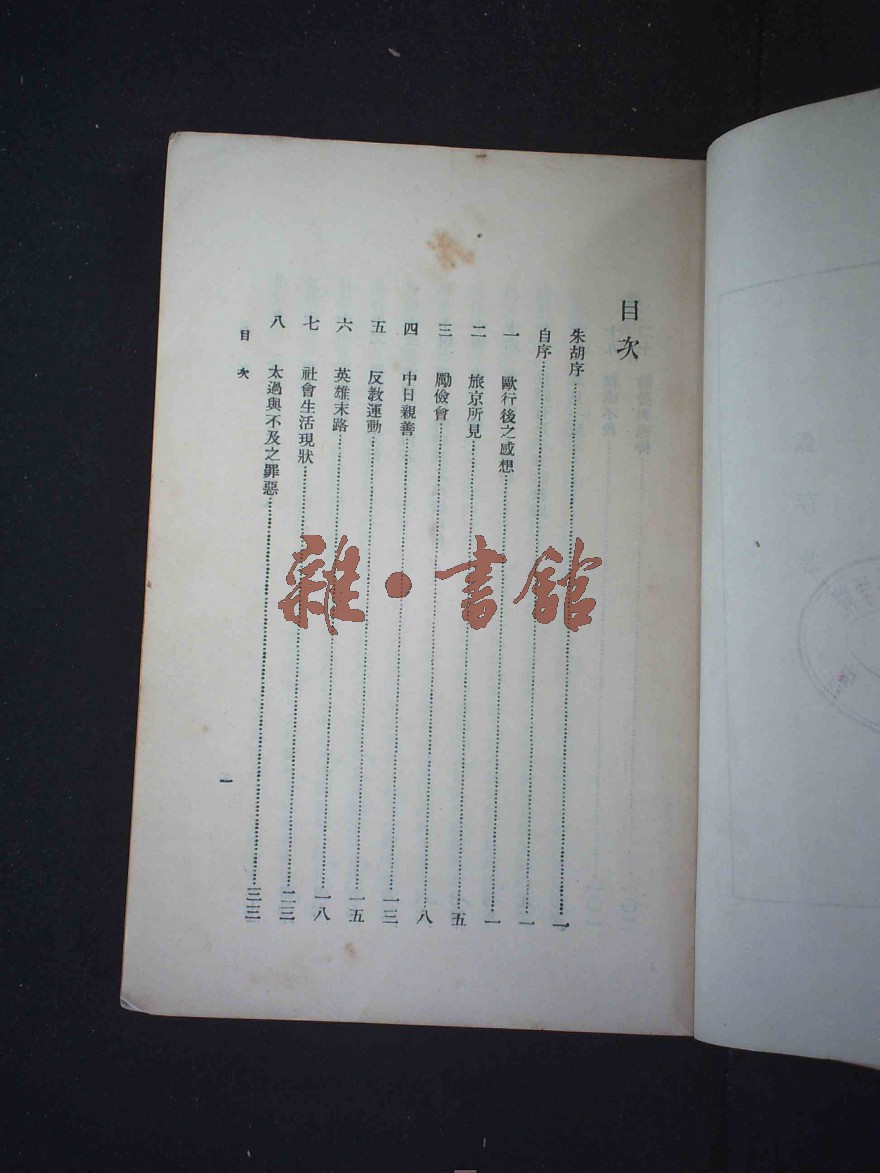 目次
朱胡序……一
自序……一
一　歐行後之感想……一
二　旅京所見……五
三　勵儉會……八
四　中日親善……一三
五　反教運動……一五
六　英雄末路……一八
七　社會生活現狀……二三
八　太過與不及之罪惡……三三
目次
一
雜·書館